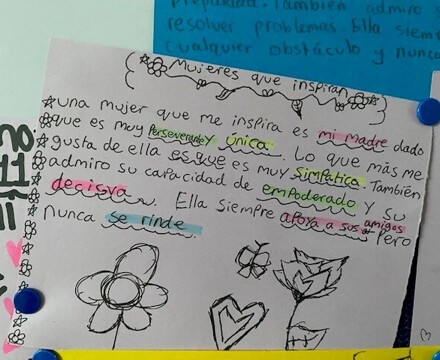 propiedad. También admiro s
resolver problemas. Ella siem
cualquier obstáculo y nunca
Mujeres que inspiran
una mujer que me inspira es mi madre dado
que es muy perseverado y única. Lo que más me
gusta de ella es que es muy simpática. También
admiro su capacidad de empoderado y su
decisva. Ella siempre apoya a sus amigos
Pero
nunca se rinde
no
11